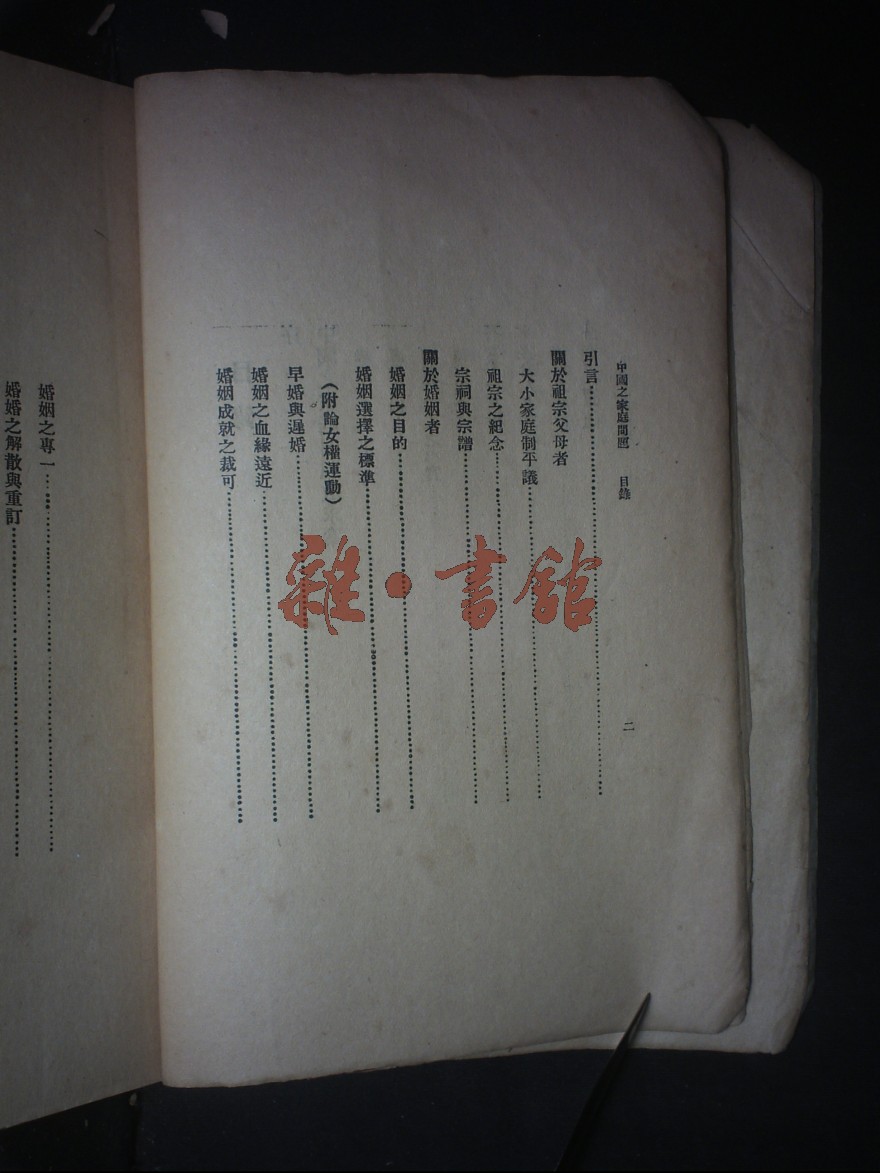 中國之家庭問題 目錄 二
引言……………………
關於祖宗父母者
大小家庭制平議……………………
祖宗之紀念……………………
宗祠與宗譜……………………
關於婚姻者
婚姻之目的……………………
婚姻選擇之標準……………………
（附論女權運動）
早婚與遲婚……………………
婚姻之血緣遠近……………………
婚姻成就之裁可……………………
婚姻之專一……………………
婚婚之解散與重訂……………………
雜·書館